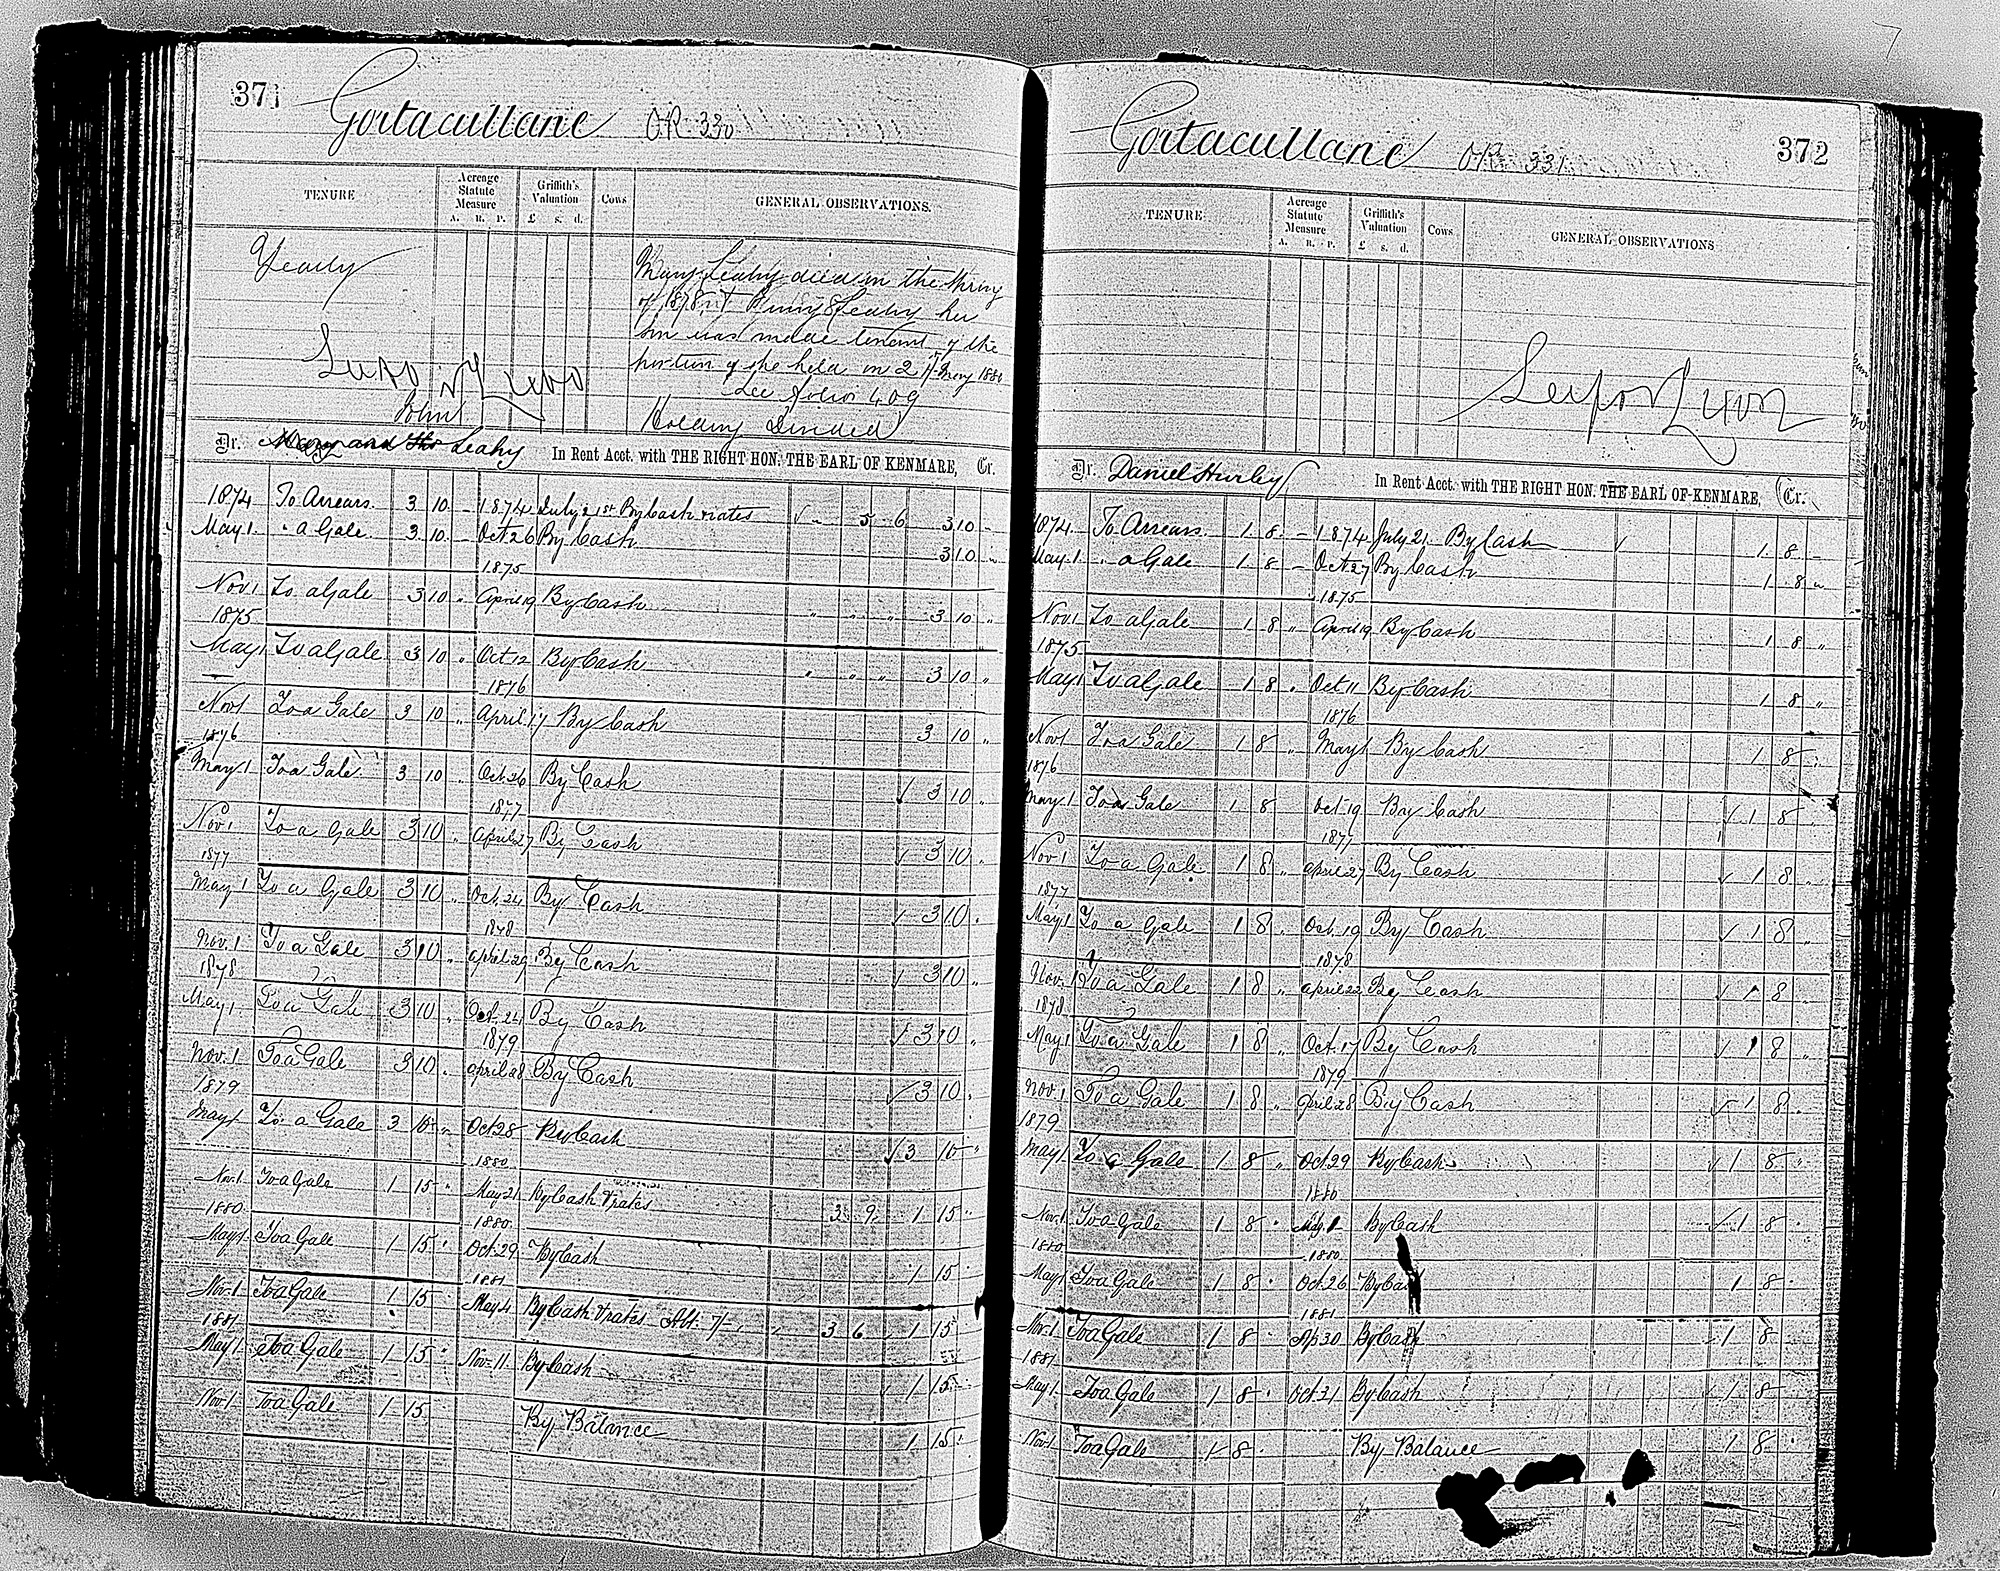 371
Gortacullane OR 330
TENURE
Acreage Statute Measure
A. R. P.
Griffith's Valuation
£ s. d.
Cows
GENERAL OBSERVATIONS.
Yearly
Mary Leahy died in the Spring
of 1878, Leahy her
son was made tenant of the
portion she held in May 1880
See folio 409
Holding Divided
John
Dr. Mary and Thos Leahy In Rent Acct. with THE RIGHT HON. THE EARL OF KENMARE, Cr.
1874 To Arrears 3 10 - 1874 July 21st By Cash & rates 5 6 3 10 -
May 1 " a Gale 3 10 - Oct 26 By Cash 3 10 "
1875
Nov 1 To a Gale 3 10 " April 19 By Cash " " " 3 10 "
1875
May 1 To a Gale 3 10 " Oct 12 By Cash " " " 3 10 "
1876
Nov 1 To a Gale 3 10 " April 17 By Cash 3 10 "
1876
May 1 To a Gale 3 10 " Oct 26 By Cash √ 3 10 "
1877
Nov 1 To a Gale 3 10 " April 27 By Cash √ 3 10 "
1877
May 1 To a Gale 3 10 " Oct 24 By Cash √ 3 10 "
1878
Nov. 1 To a Gale 3 10 " April 29 By Cash √ 3 10 "
1878
May 1 To a Gale 3 10 " Oct. 24 By Cash √ 3 10 "
1879
Nov. 1 To a Gale 3 10 " April 28 By Cash √ 3 10 "
1879
May 1 To a Gale 3 10 " Oct 28 By Cash √ 3 10 "
1880
Nov 1 To a Gale 1 15 " May 21 By Cash & rates 3 9 1 15 "
1880 1880
May 1 To a Gale 1 15 " Oct. 29 By Cash 1 15
1881
Nov 1 To a Gale 1 15 " May 4 By Cash & rates Abt. 7/- " 3 6 1 15
1881
May 1 To a Gale 1 15 " Nov 11 By Cash 1 15 "
Nov 1 To a Gale 1 15 By Balance 1 15 "
372
Gortacullane OR 331
TENURE
Acreage Statute Measure
A. R. P.
Griffith's Valuation
£ s. d.
Cows
GENERAL OBSERVATIONS
Dr. Daniel Hurley In Rent Acct. with THE RIGHT HON. THE EARL OF KENMARE, Cr.
1874 To Arrears 1 8 - 1874 July 21 By Cash √ 1 8 -
May 1 " a Gale 1 8 - Oct 27 By Cash 1 8 "
1875
Nov 1 To a Gale 1 8 " April 19 By Cash 1 8 "
1875
May 1 To a Gale 1 8 " Oct 11 By Cash 1 8 "
1876
Nov 1 To a Gale 1 8 " May 1 By Cash 1 8 "
1876
May 1 To a Gale 1 8 Oct 19 By Cash √ 1 8
1877
Nov 1 To a Gale 1 8 " April 27 By Cash √ 1 8 "
1877
May 1 To a Gale 1 8 " Oct. 19 By Cash √ 1 8 "
1878
Nov. 1 To a Gale 1 8 " April 22 By Cash √ 1 8 "
1878
May 1 To a Gale 1 8 " Oct. 17 By Cash √ 1 8 "
1879
Nov. 1 To a Gale 1 8 " April 28 By Cash √ 1 8 "
1879
May 1 To a Gale 1 8 " Oct 29 By Cash √ 1 8 "
1880
Nov 1 To a Gale 1 8 " May 1 By Cash √ 1 8 "
1880 1880
May 1 To a Gale 1 8 " Oct 26 By Cash 1 8 "
1881
Nov 1 To a Gale 1 8 " Ap 30 By Cash √ 1 8
1881
May 1 To a Gale 1 8 " Oct 21 By Cash √ 1 8
Nov 1 To a Gale 1 8 " By Balance 1 8 "